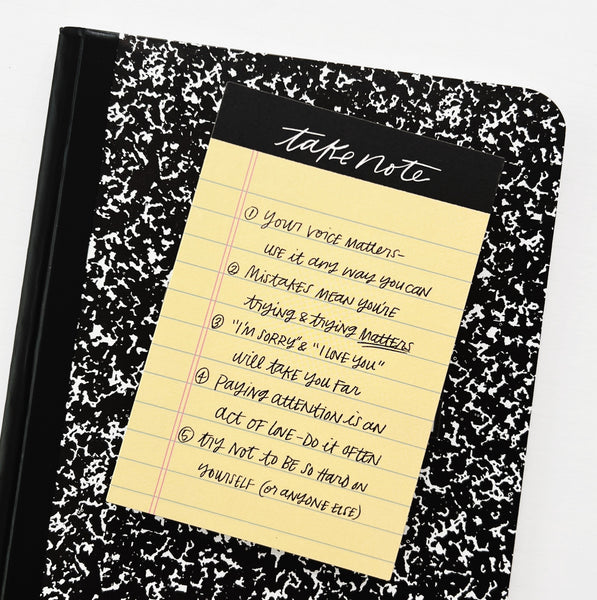 take note
① Your voice matters-
use it any way you can
② Mistakes mean you're
trying & trying matters
③ "I'm sorry" & "I love you"
will take you far
④ Paying attention is an
act of love-do it often
⑤ try not to be so hard on
yourself (or anyone else)